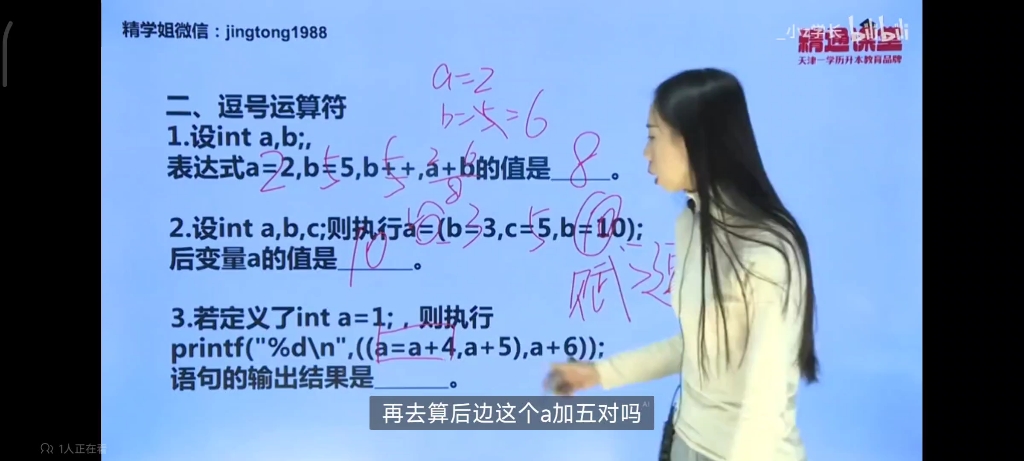 精学姐微信：jingtong1988
_小z学长 bilibili
精通课堂
天津一学历升本教育品牌
a=2
b=5=6
二、逗号运算符
1.设int a,b;,
表达式a=2,b=5,b++,a+b的值是_____。
2 5 5 5 2 6 8
8
2.设int a,b,c;则执行a=(b=3,c=5,b=10);
3 5
后变量a的值是_____。
10
赋>逗
3.若定义了int a=1;，则执行
printf("%d\n",((a=a+4,a+5),a+6));
语句的输出结果是_____。
再去算后边这个a加五对吗
AI
1人正在看